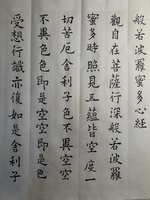 般若波羅蜜多心經
觀自在菩薩行深般若波羅
蜜多時照見五蘊皆空度一
切苦厄舍利子色不異空空
不異色色即是空空即是色
受想行識亦復如是舍利子